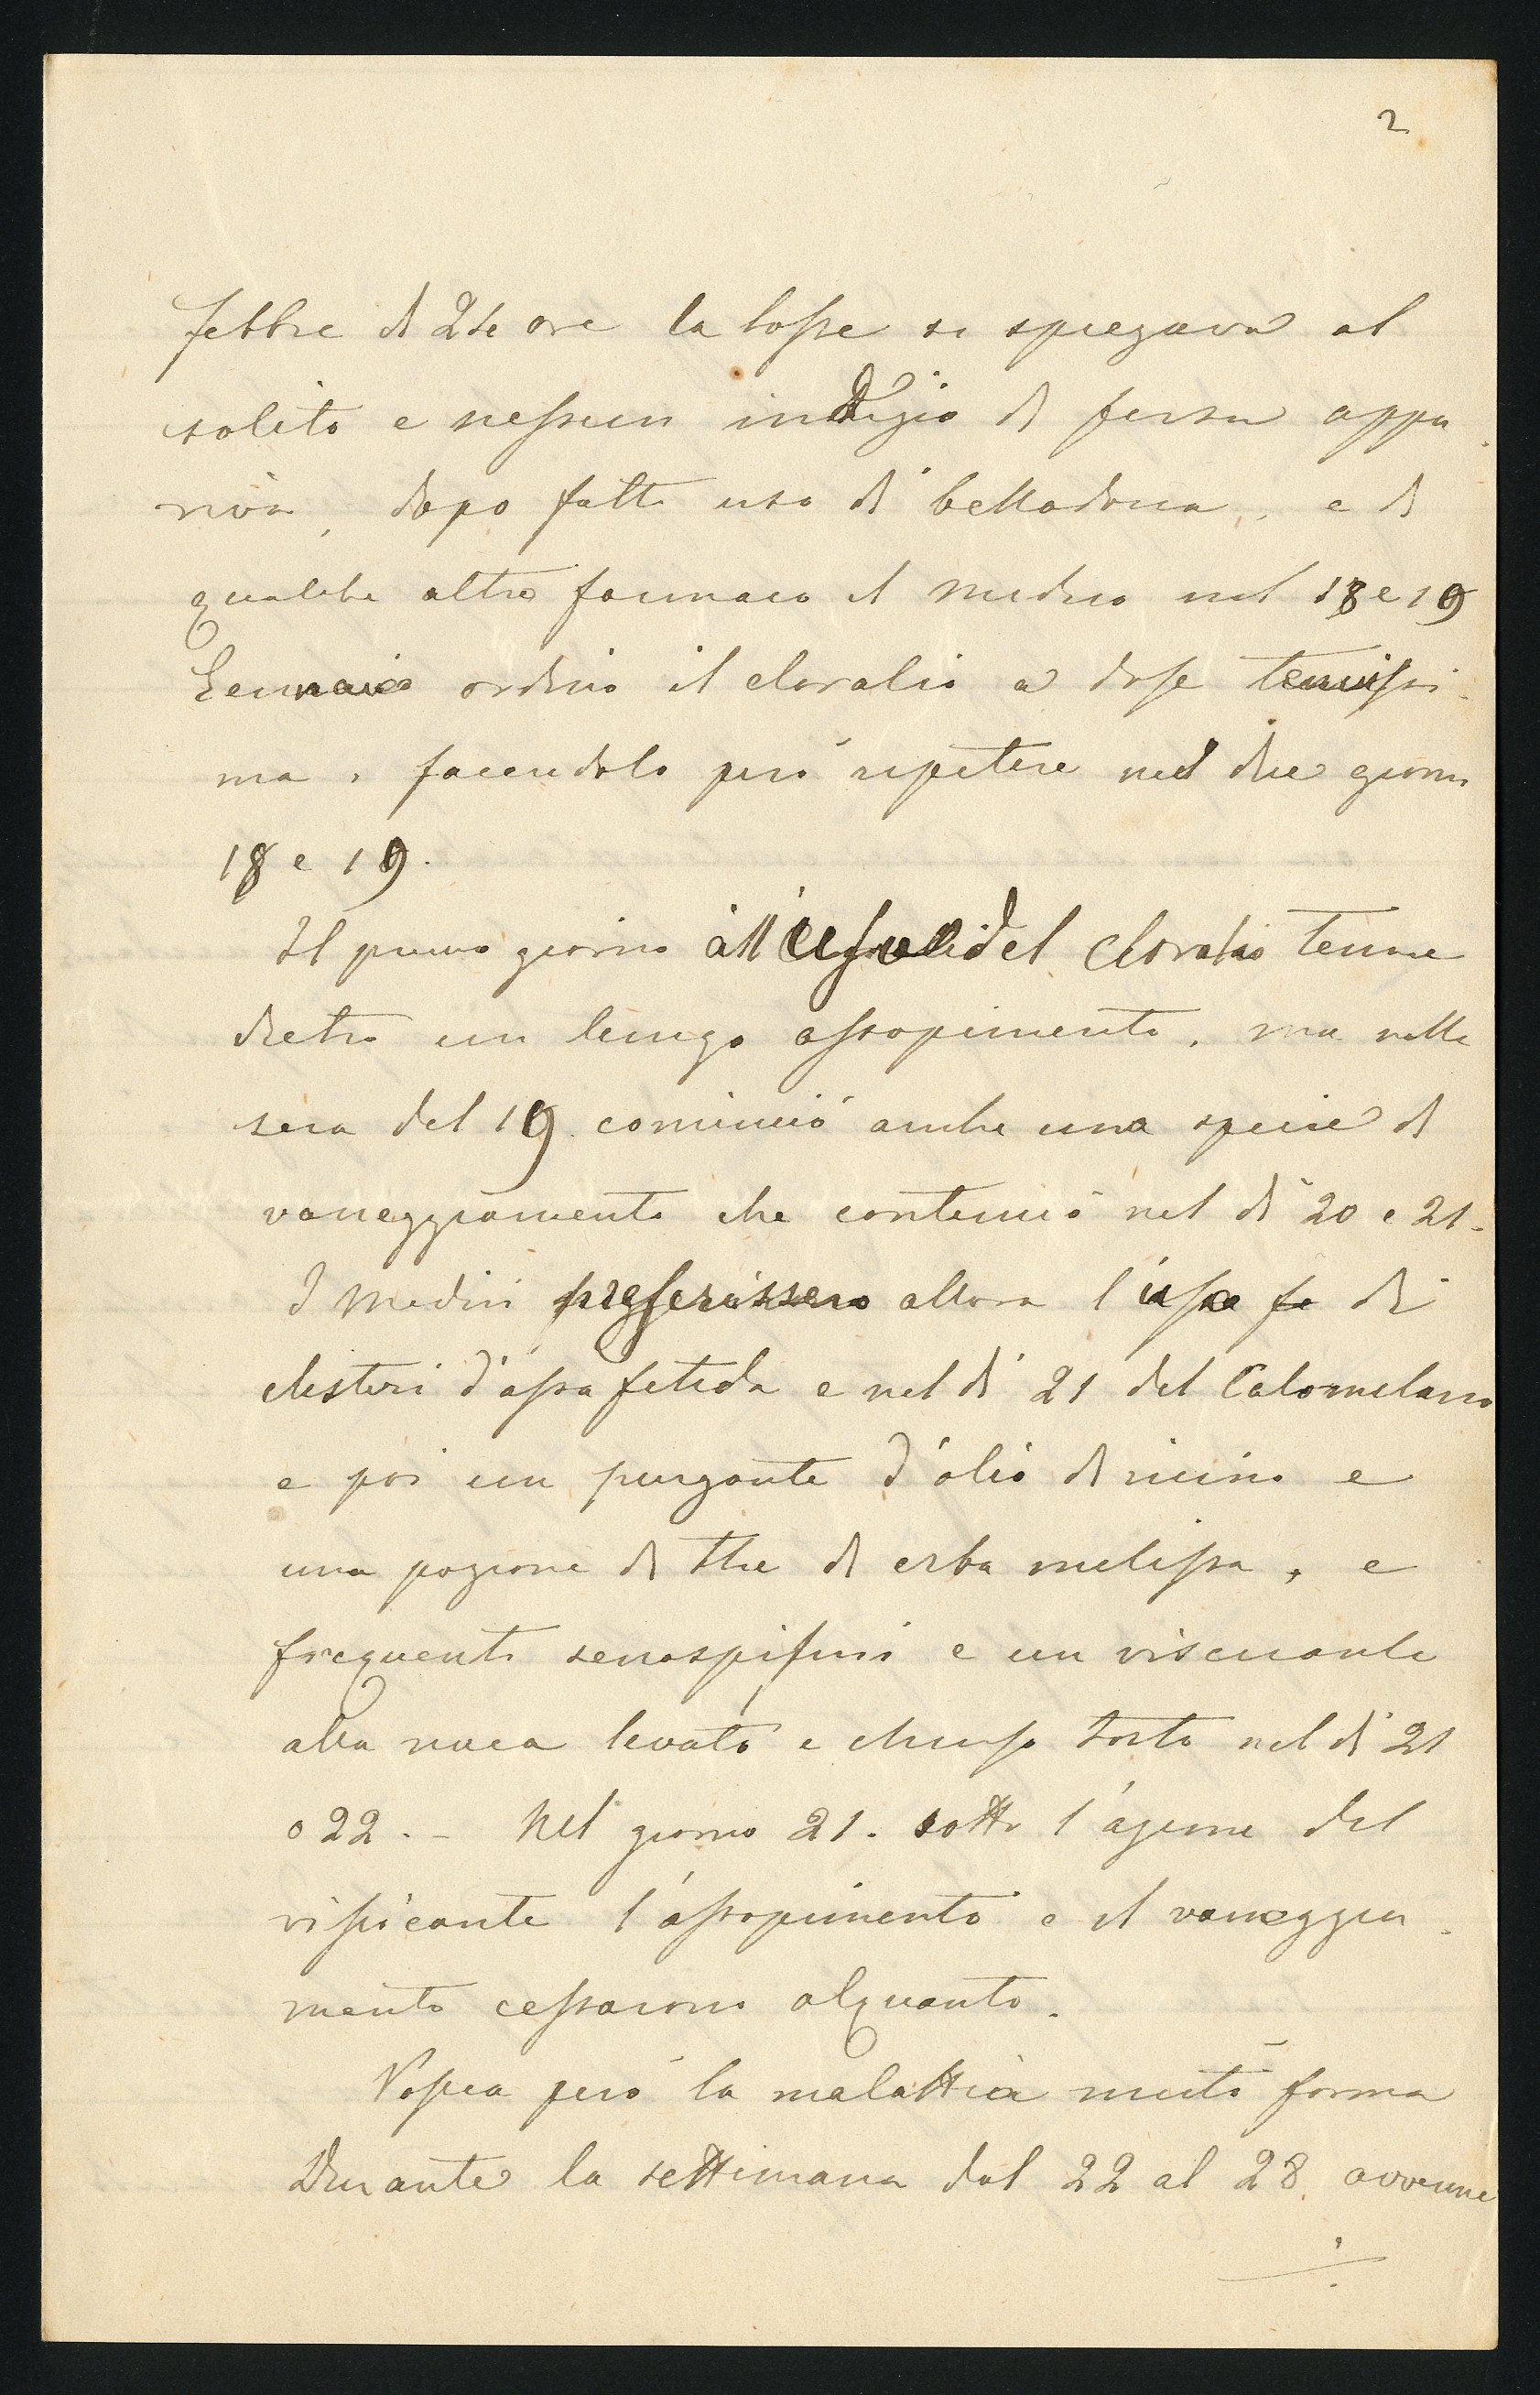 2
febbre di 24 ore la tosse si spiegava al
solito e nessun indizio di fersa appa
riva, dopo fatto uso di belladonna, e di
qualche altro farmaco il medico nel 18 e 19
Gennaio ordinò il cloralio a dose tenuissi-
ma, facendolo però ripetere nei due giorni
18 e 19.
Il primo giorno all'uso del Cloralio tenne
dietro un lungo assopimento, ma nella
sera del 19 cominciò anche una specie di
vaneggiamento che continuò nel dì 20 e 21.
I Medici allora l'uso di
clisteri d'assa fetida e nel dì 21 del Calomelano
e poi un purgante d'olio di ricino e
una pozione di the di erba melissa, e
frequenti senaspismi e un viscicante
alla nuca levato e chiuso tosto nel dì 21
o 22. - Nel giorno 21. sotto l'azione del
vissicante l'assopimento e il vaneggia-
mento cessarono alquanto.
però la malattia mutò forma
Durante la settimana dal 22 al 28. avvenne